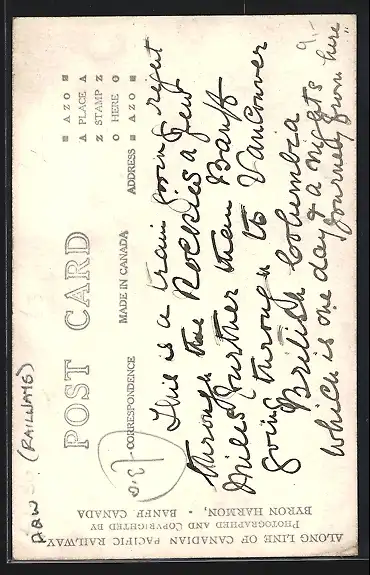 POST CARD
CORRESPONDENCE
MADE IN CANADA
ADDRESS
AZO
A PLACE A
Z STAMP Z
O HERE O
AZO
This is a train going right
through the Rockies a few
miles further than Banff
going through to Vancouver
British Columbia
which is one day & a nights
journey from here
9.-
(RAILWAYS)
ALONG LINE OF CANADIAN PACIFIC RAILWAY
PHOTOGRAPHED AND COPYRIGHTED BY
BYRON HARMON, - BANFF, CANADA